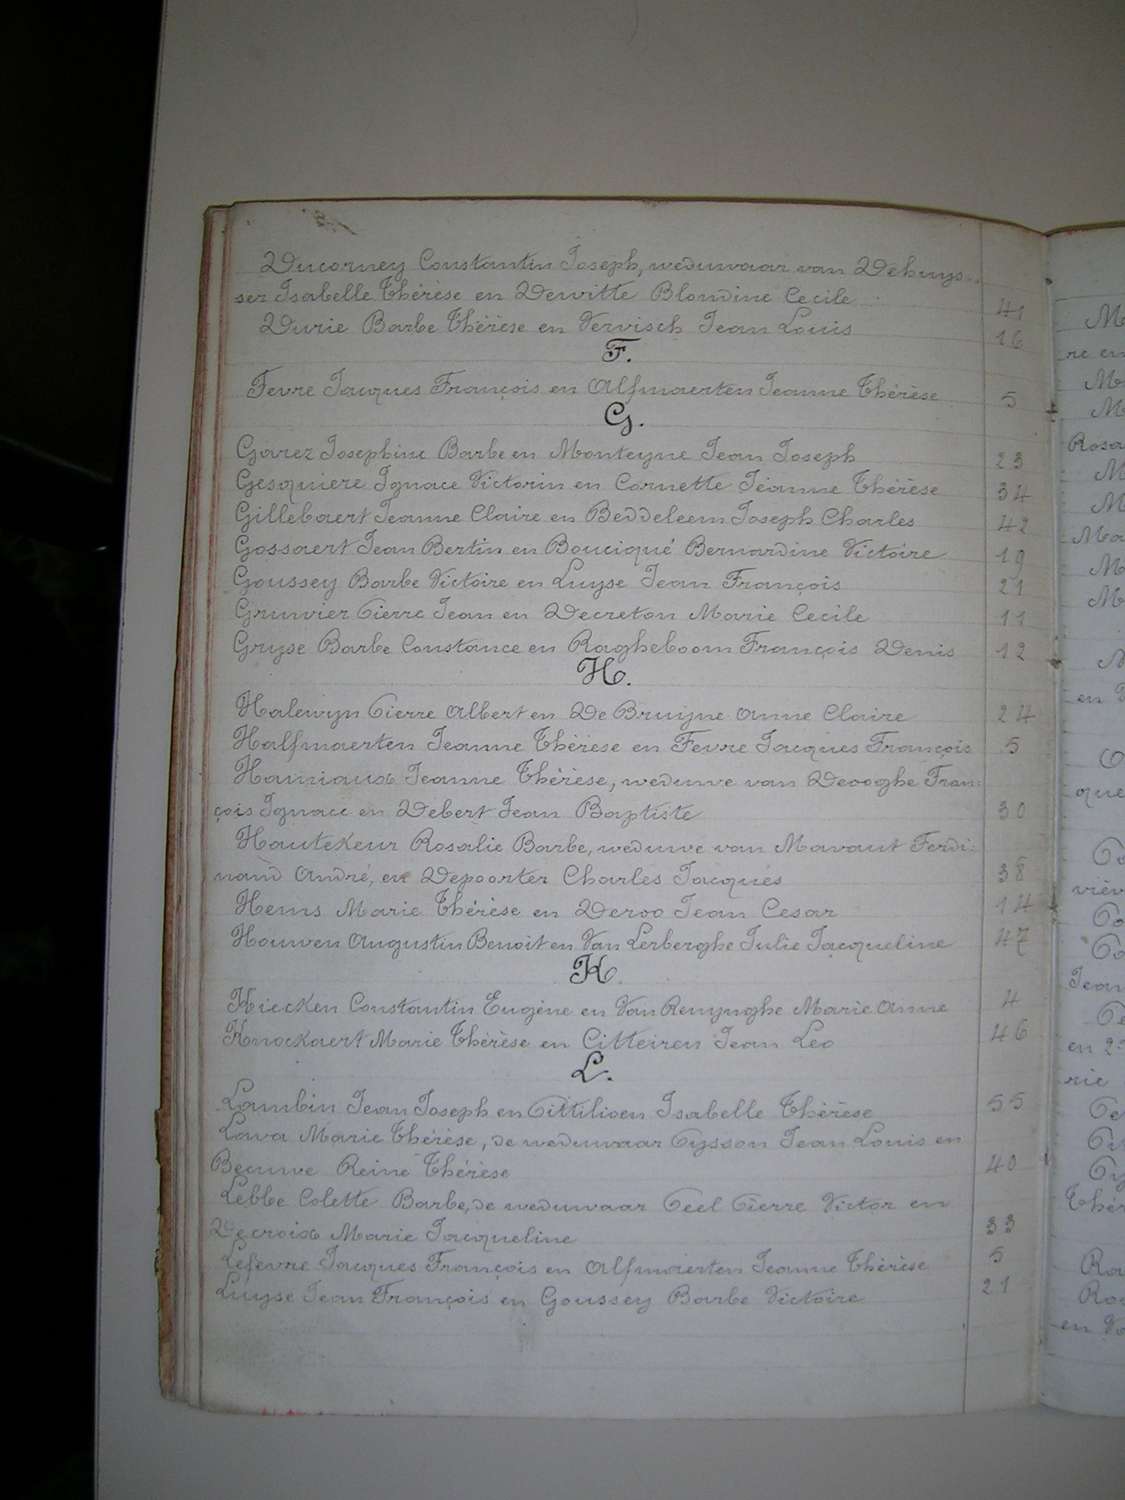 Ducorney Constantin Joseph, weduwaar van Dehuys-
ser Isabelle Thérèse en Dewitte Blondine Cecile 41
Durie Barbe Thérèse en Vervisch Jean Louis 16
F.
Fevre Jacques François en Alfmaerten Jeanne Thérèse 5
G.
Garez Josephine Barbe en Monteyne Jean Joseph 23
Gesquiere Ignace Victorin en Cornette Jeanne Thérèse 34
Gillebaert Jeanne Claire en Beddeleem Joseph Charles 42
Gossaert Jean Bertin en Bouciqué Bernardine Victoire 19
Goussey Barbe Victoire en Luyse Jean François 21
Gruwier Pierre Jean en Decreton Marie Cecile 11
Gryse Barbe Constance en Ragheboom François Denis 12
H.
Halewyn Pierre Albert en De Bruijne Anne Claire 24
Halfmaerten Jeanne Thérèse en Fevre Jacques François 5
Hauriaux Jeanne Thérèse, weduwe van Deooghe Fran-
çois Ignace en Debert Jean Baptiste 30
Hautekeur Rosalie Barbe, weduwe van Mavaut Ferdi-
nand André, en Depoorter Charles Jacques 38
Hems Marie Thérèse en Deroo Jean Cesar 14
Houwen Augustin Benoit en Van Lerberghe Julie Jacqueline 47
K.
Kiecken Constantin Eugène en Van Renynghe Marie Anne 4
Knockaert Marie Thérèse en Citteiren Jean Leo 46
L.
Lambin Jean Joseph en Pittilioen Isabelle Thérèse 55
Lava Marie Thérèse, de weduwaar Pysson Jean Louis en
Becuwe Reine Thérèse 40
Lebbe Colette Barbe, de weduwaar Peel Pierre Victor en
Decroix Marie Jacqueline 33
Lefevre Jacques François en Alfmaerten Jeanne Thérèse 5
Luyse Jean François en Goussey Barbe Victoire 21